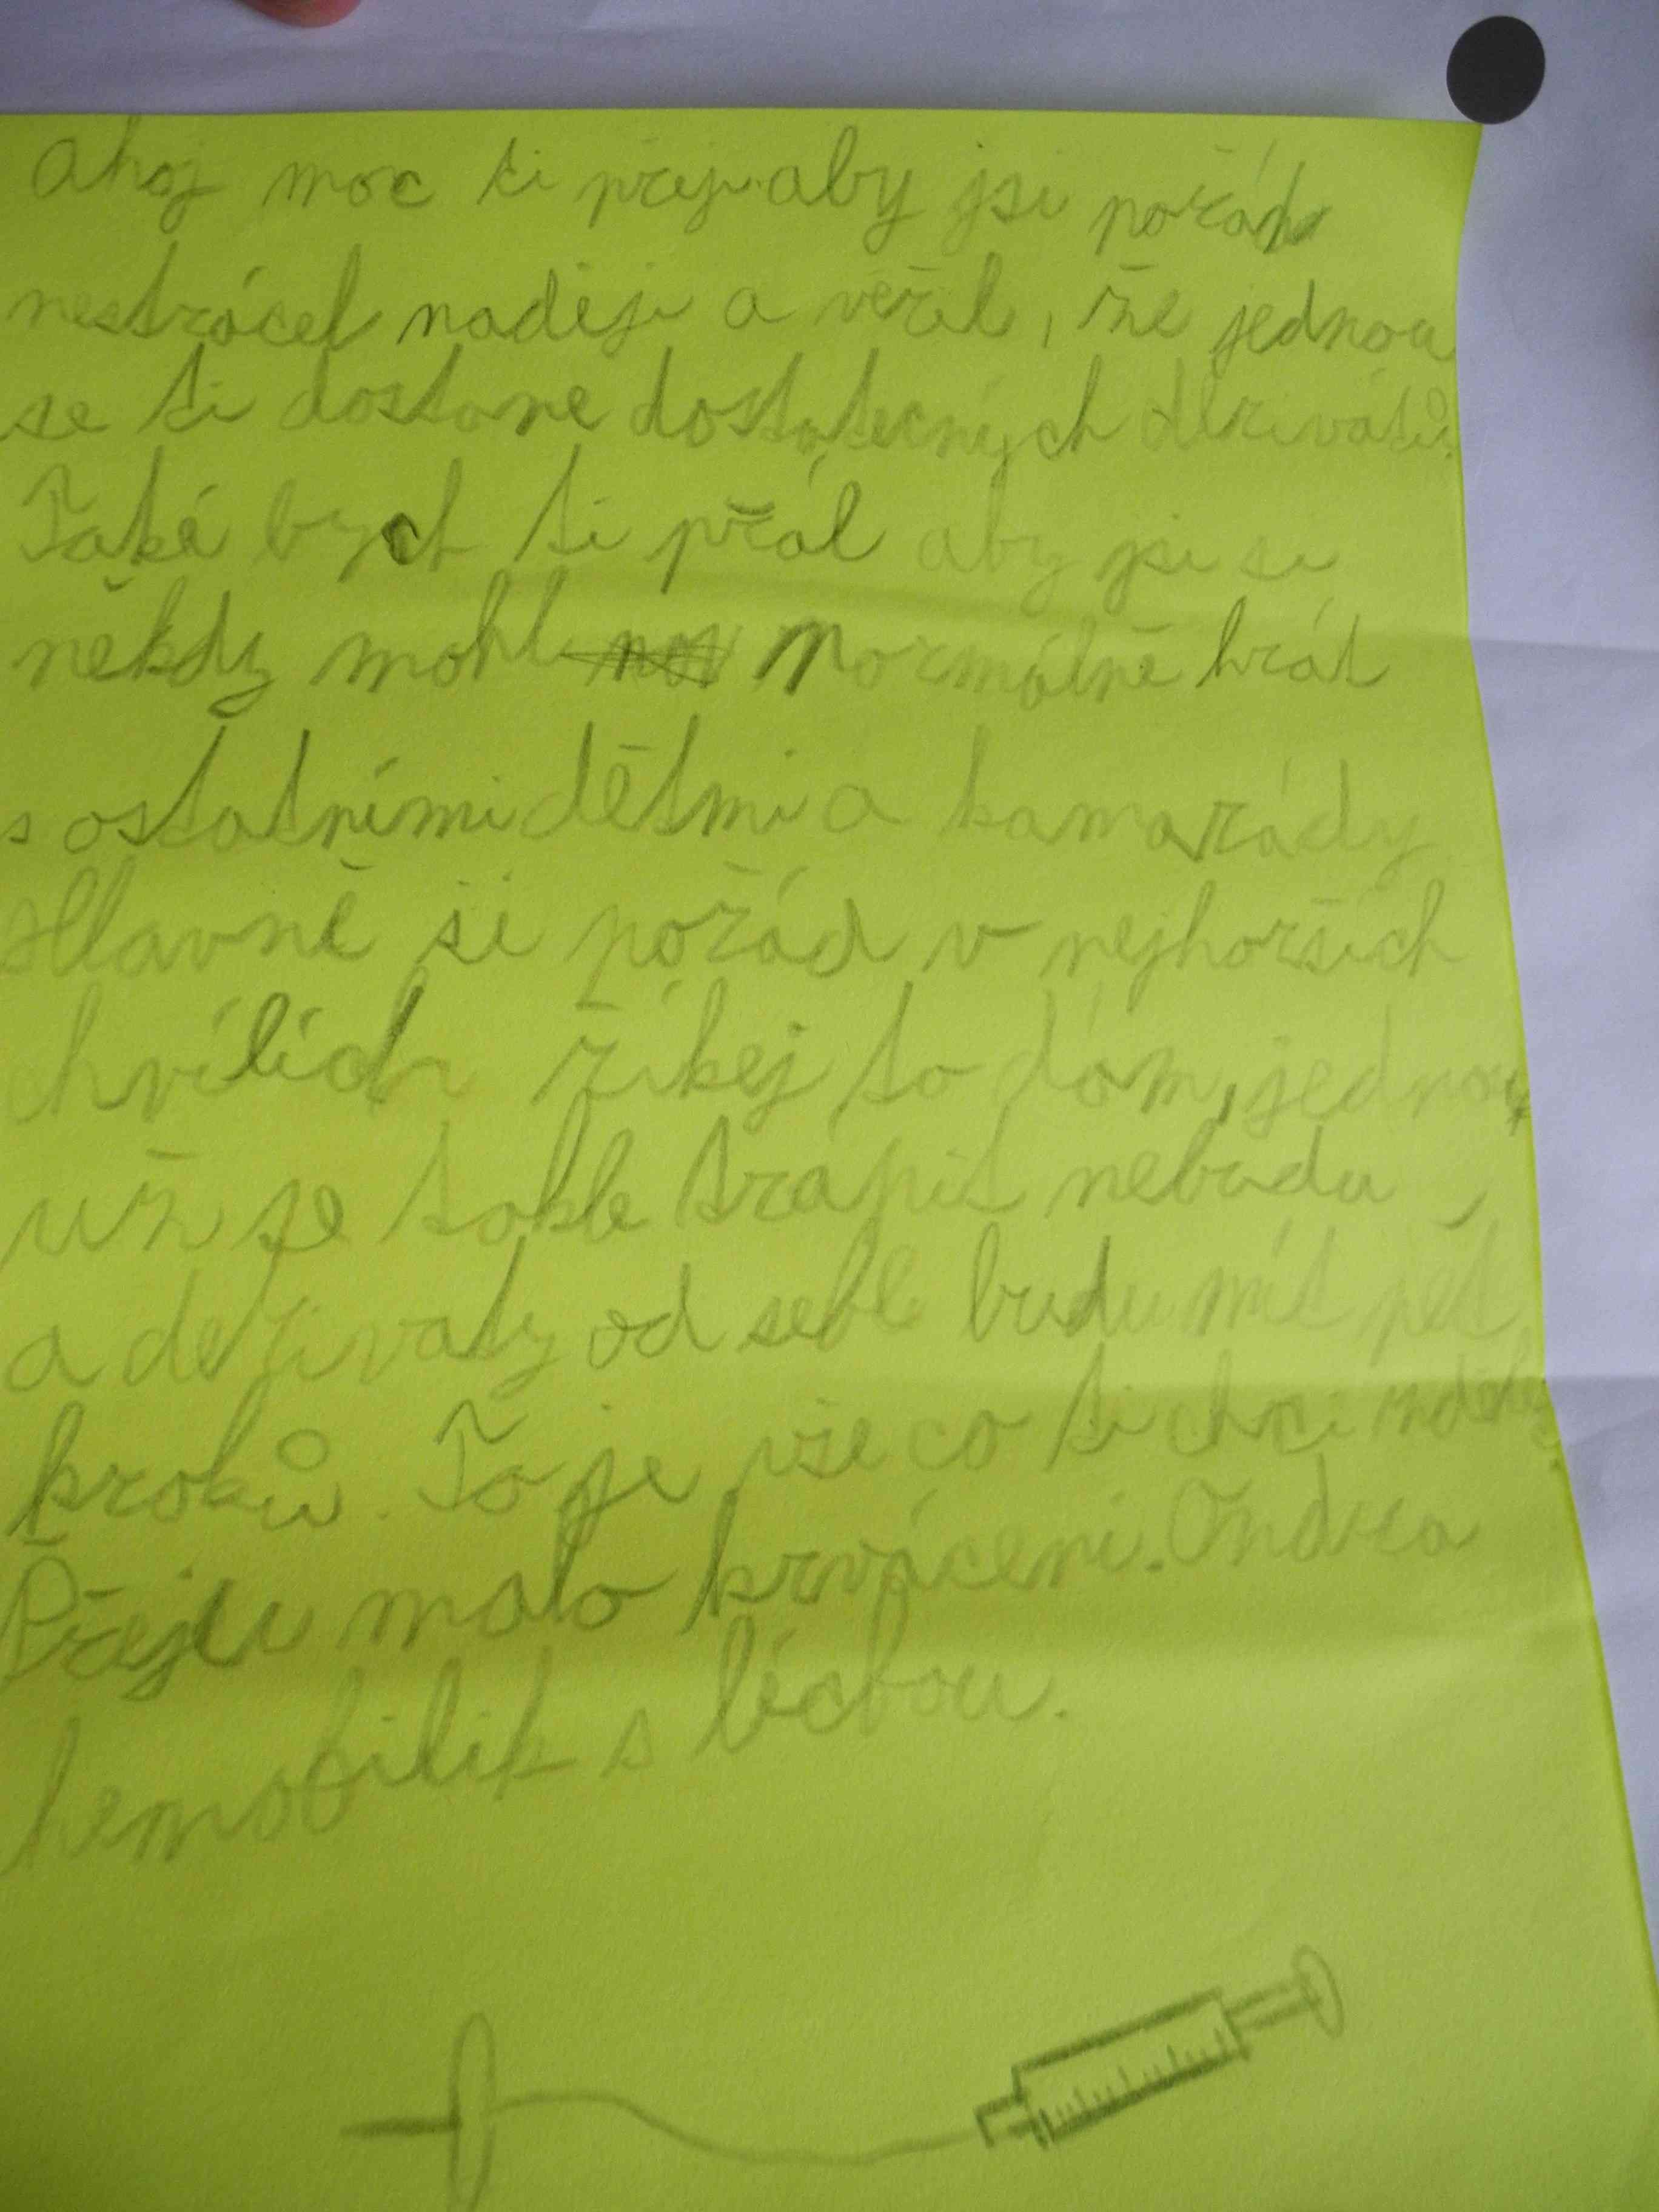 Ahoj moc ti přeji aby jsi pořád
nestrácel naději a věřil, že jednou
se ti dostane dostatečných derivátů.
Také bych ti přál aby jsi si
někdy mohl normálně hrát
s ostatními dětmi a kamarády
Hlavně si pořád v nejhorších
chvílích říkej to dám, jednou
už se takle trápit nebudu
a derivaty od sebe budu mít pět
kroků. To je vše co ti chci
Přeju málo krvácení. Ondra
hemofilik s léčbou.